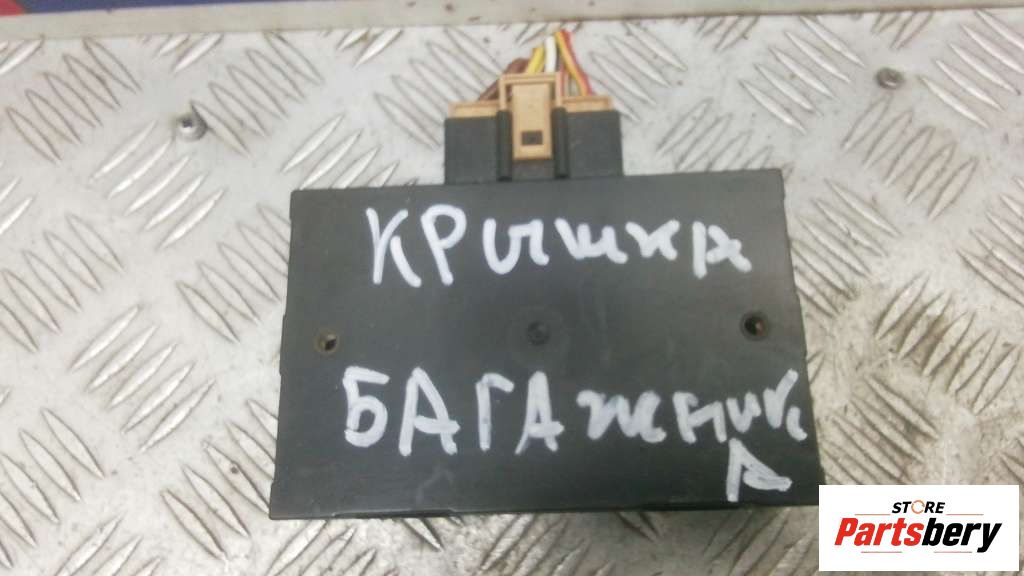 КРышка
БАГАжник
А
STORE
Partsbery